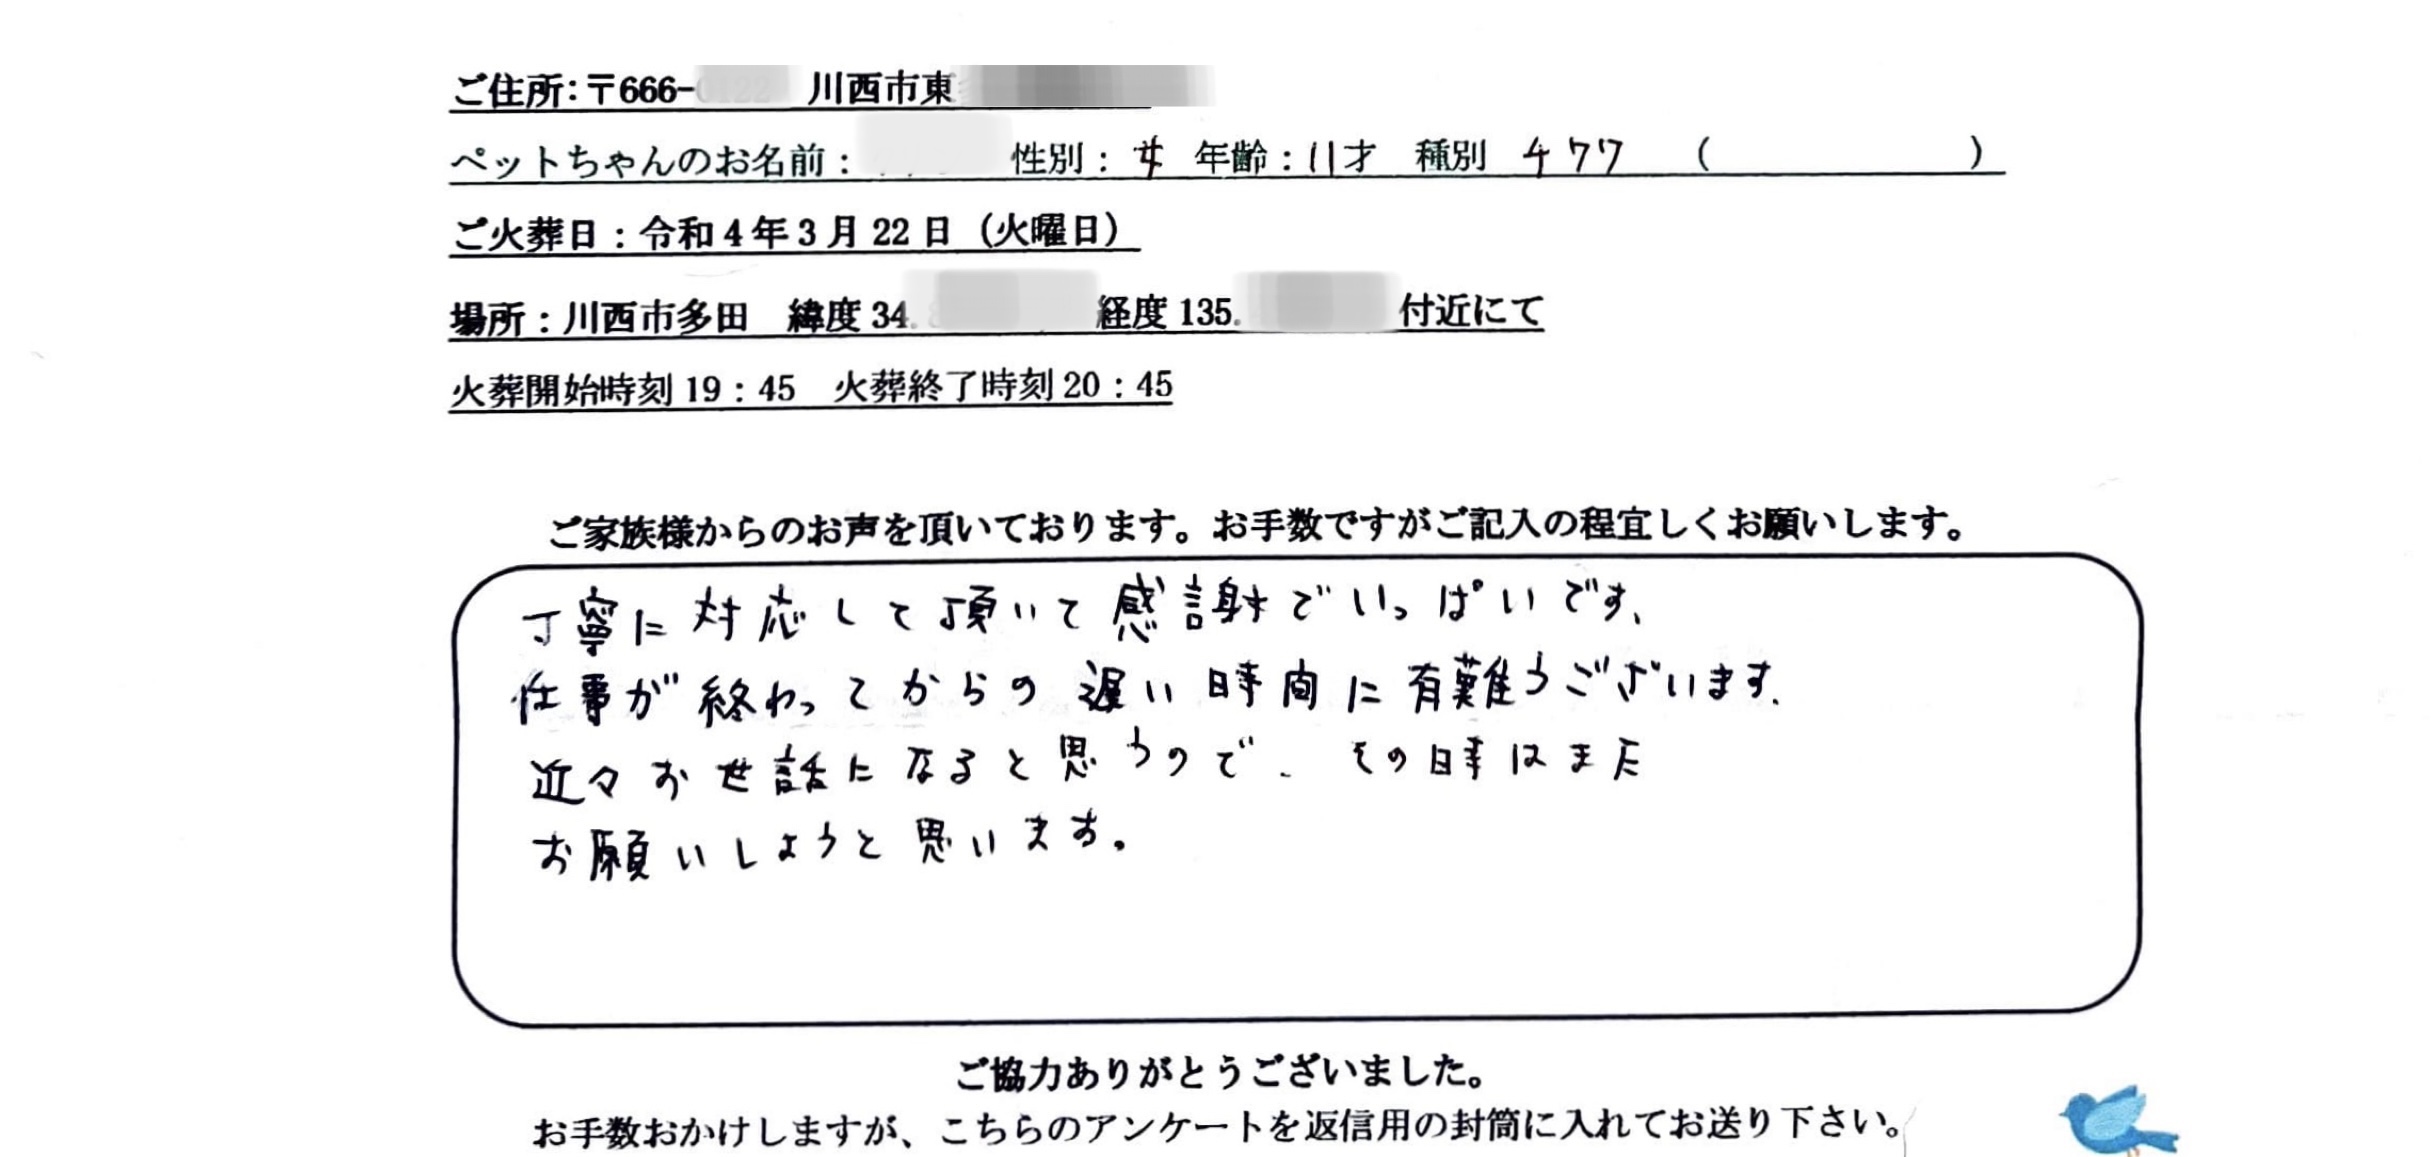 ご住所:〒666- 川西市東
ペットちゃんのお名前: 性別:女 年齢:11才 種別 チワワ ( )
ご火葬日:令和4年3月22日(火曜日)
場所:川西市多田 緯度34. 経度135. 付近にて
火葬開始時刻19:45 火葬終了時刻20:45
ご家族様からのお声を頂いております。お手数ですがご記入の程宜しくお願いします。
丁寧に対応して頂いて感謝でいっぱいです、
仕事が終わってからの遅い時間に有難うございます、
近々お世話になると思うので、その時はまた
お願いしようと思います。
ご協力ありがとうございました。
お手数おかけしますが、こちらのアンケートを返信用の封筒に入れてお送り下さい。